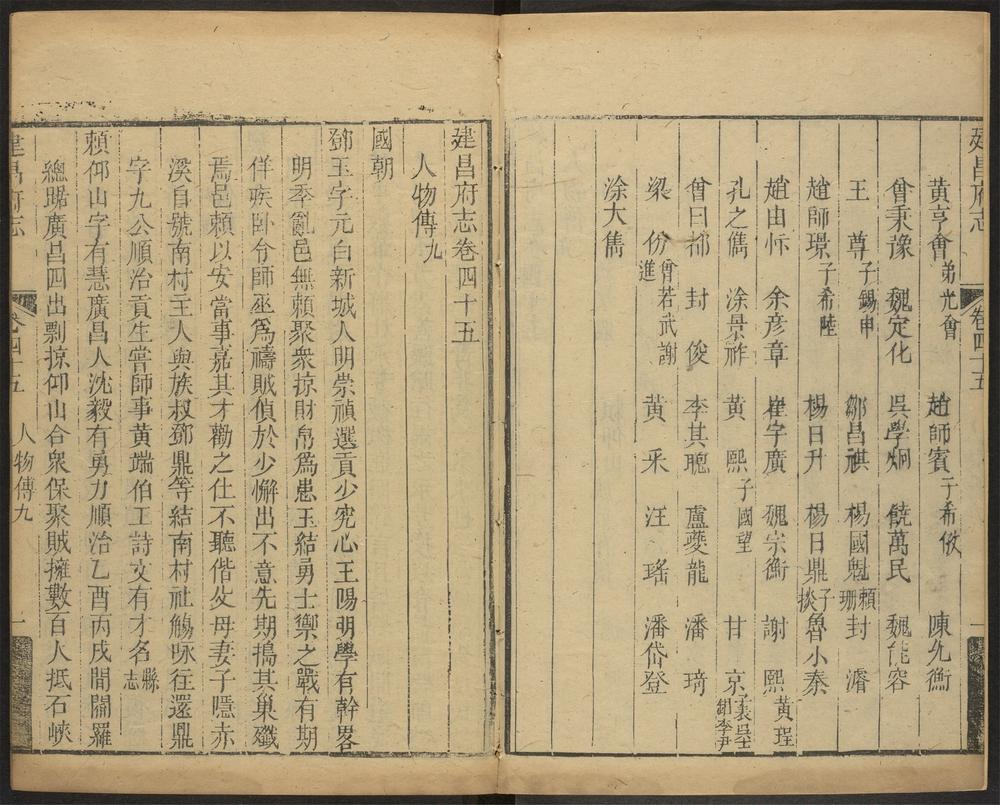 建昌府志 卷四十五 一
黃亨會弟光會 趙師賓子希攸 陳允衡
曾秉豫 魏定化 吳學炯 饒萬民 魏能容
王尊子錫申 鄒昌祺 楊國魁賴珊 封濬
趙師璟子希陸 楊日升 楊日鼎子掞 魯小秦
趙由忭 余彥章 崔字廣 魏宗衡 謝熙黃珵
孔之儁 涂景祚 黃熙子國望 甘京
曾曰都 封俊 李其聰 盧夔龍 潘琦
梁份曾若武謝進 黃采 汪瑤 潘岱登
涂大雋
建昌府志卷四十五
人物傳九
國朝
鄧玉字元白新城人明崇禎選貢少究心王陽明學有幹畧
明季亂邑無賴聚衆掠財帛爲患玉結勇士禦之戰有期
佯疾卧令師巫爲禱賊偵於少懈出不意先期搗其巢殲
焉邑賴以安當事嘉其才勸之仕不聽偕父母妻子隱赤
溪自號南村主人與族叔鄧鼎等結南村社觴咏往還鼎
字九公順治貢生嘗師事黃端伯工詩文有才名縣志
賴仰山字有慧廣昌人沈毅有勇力順治乙酉丙戌間關羅
總踞廣昌四出剽掠仰山合衆保聚賊擁數百人抵石峽
建昌府志 卷四十五 人物傳九 一